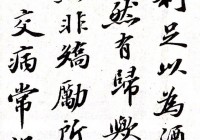 利足以為酒
然有歸歟
非矯勵所
交病常